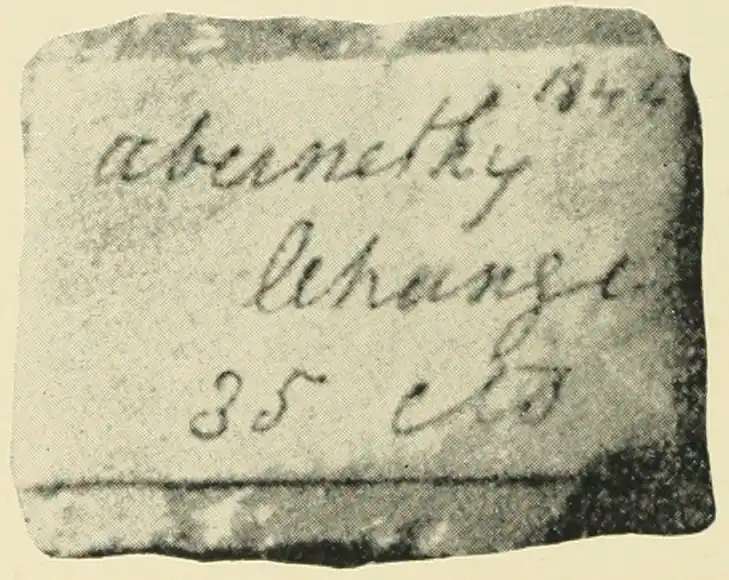 1844
abernethy
lehange
35 cts